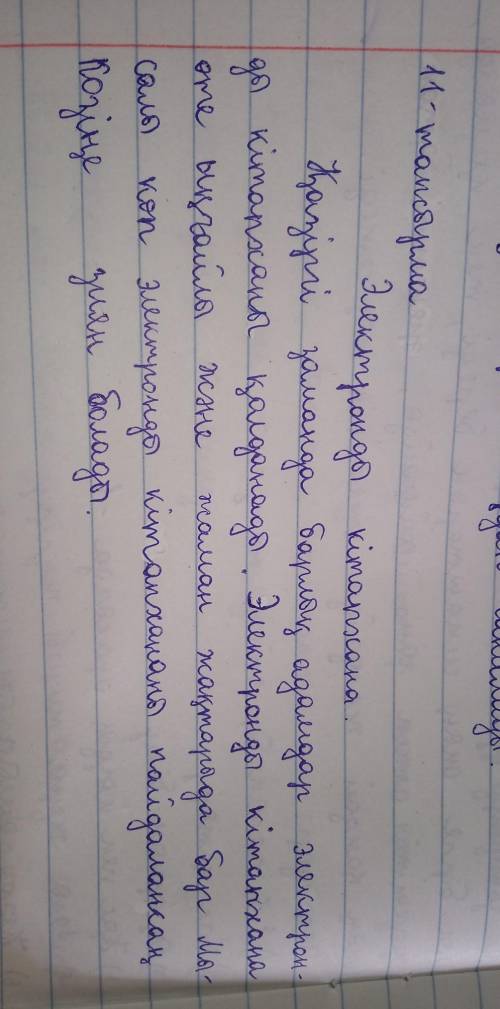 11-тапсырма
Электронды кітапхана.
Қазіргі заманда барлық адамдар электрон-
ды кітапханы қалданады. Электронды кітапхана
өте ыңғайлы және жаман жақтарыда бар Мы-
салы көп электронды кітапхананы пайдалансаң
Көзіңе зиян болады.